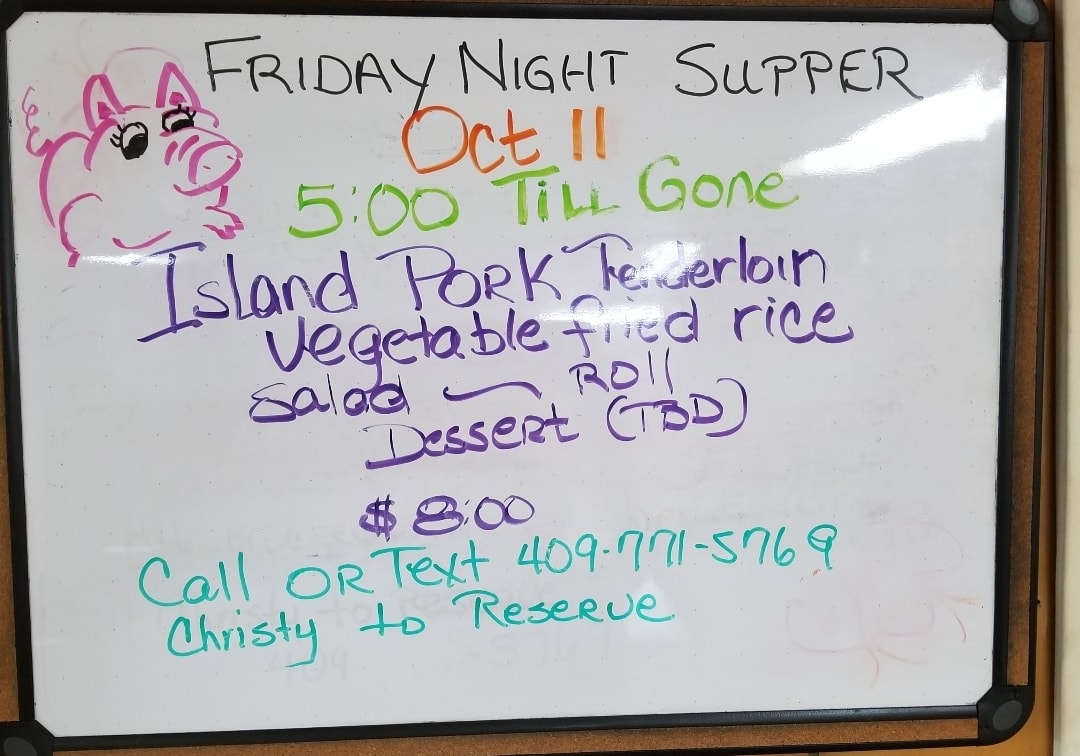 FRIDAY NIGHT SUPPER
Oct 11
5:00 Till Gone
Island PORK Tenderloin
vegetable fried rice
Salad — ROll
Dessert (TBD)
$ 8:00
Call OR Text 409-771-5769
Christy to Reserve